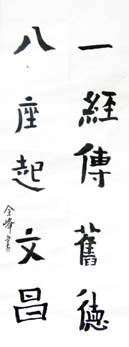 一經傳舊德
八座起文昌
全峰書